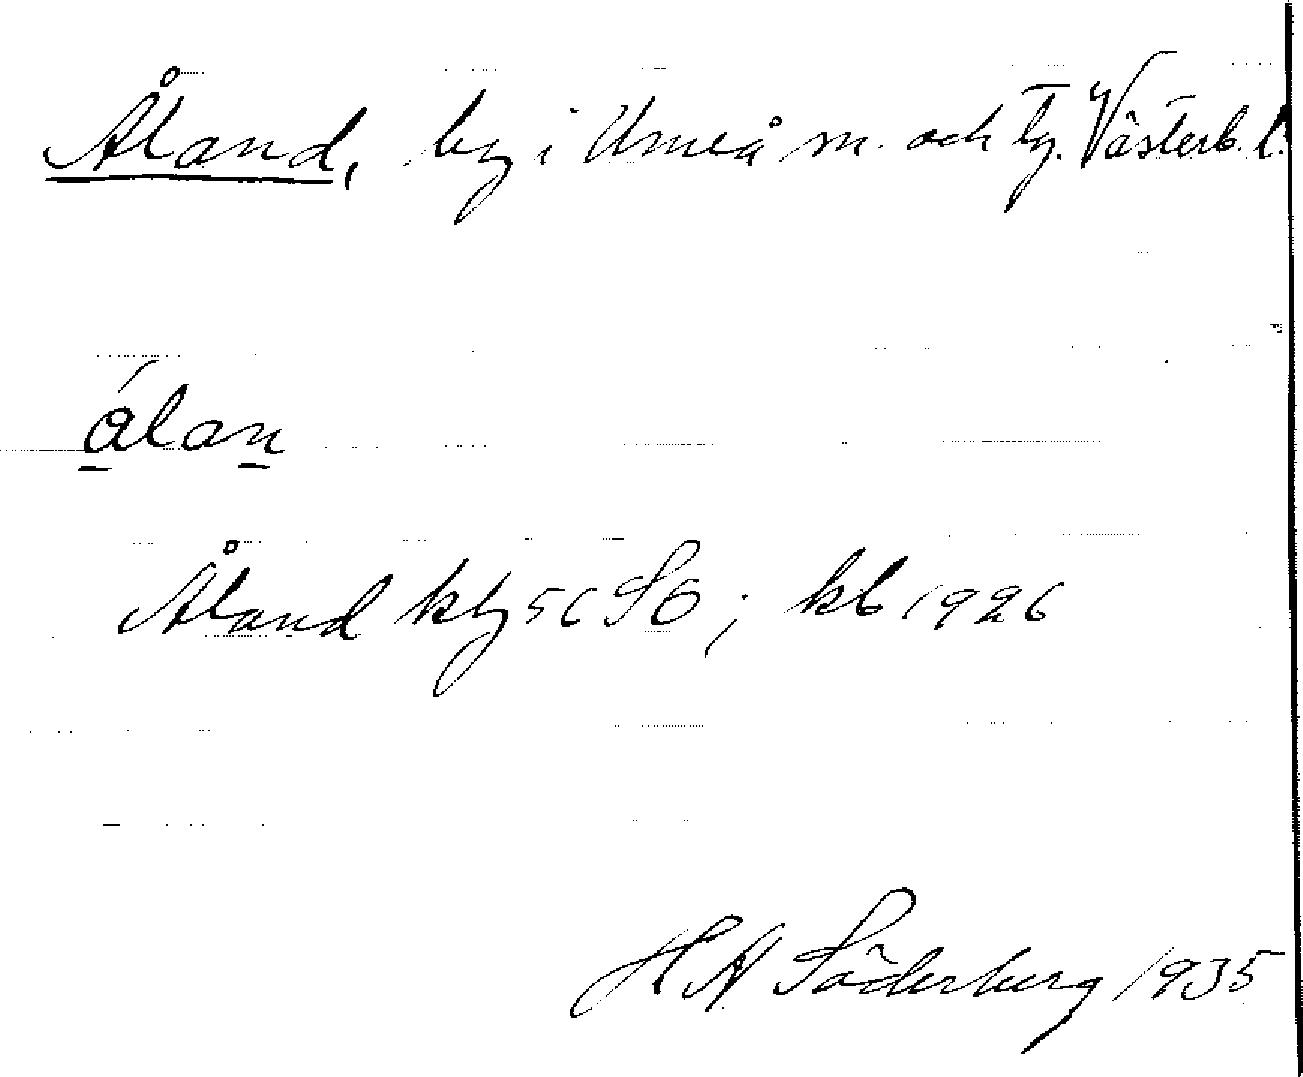 Åland, by i Umeå sn. och tg. Västerb. l.
álan
Åland kbg 56 SÖ; kb 1926
H A Söderberg 1935